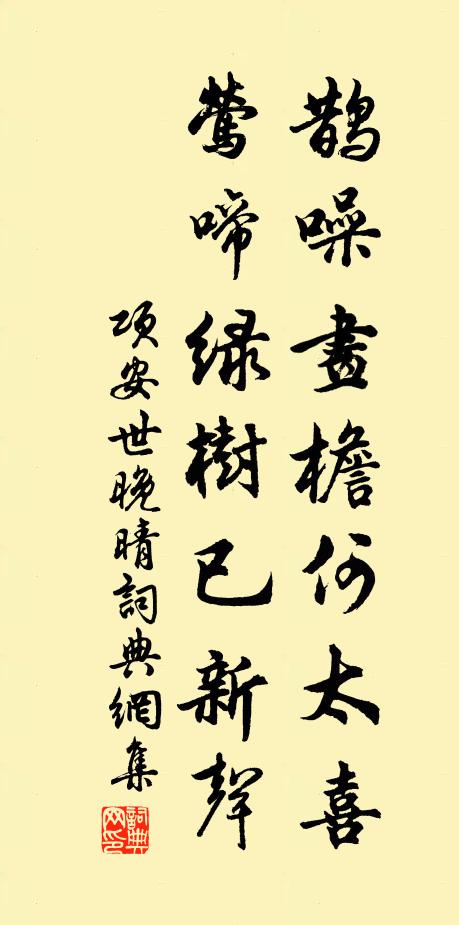 鵲噪畫檐何太喜
鶯啼緑樹已新聲
项安世晚晴詞典網集
詞典网印